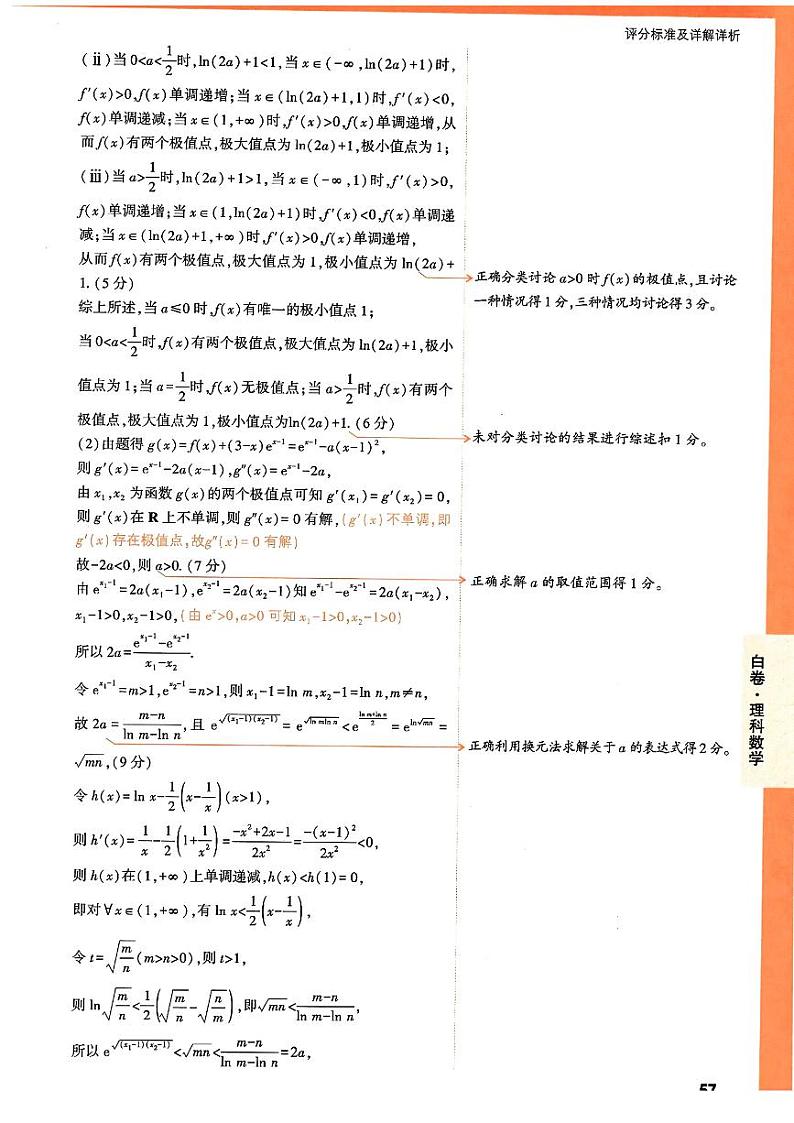 评分标准及详解详析
(ⅱ)当0<a<1/2时,ln(2a)+1<1,当x∈(-∞,ln(2a)+1)时,
f′(x)>0,f(x)单调递增;当x∈(ln(2a)+1,1)时,f′(x)<0,
f(x)单调递减;当x∈(1,+∞)时,f′(x)>0,f(x)单调递增,从
而f(x)有两个极值点,极大值点为ln(2a)+1,极小值点为1;
(ⅲ)当a>1/2时,ln(2a)+1>1,当x∈(-∞,1)时,f′(x)>0,
f(x)单调递增;当x∈(1,ln(2a)+1)时,f′(x)<0,f(x)单调递
减;当x∈(ln(2a)+1,+∞)时,f′(x)>0,f(x)单调递增,
从而f(x)有两个极值点,极大值点为1,极小值点为ln(2a)+
1.(5分)
正确分类讨论a>0时f(x)的极值点,且讨论
一种情况得1分,三种情况均讨论得3分。
综上所述,当a≤0时,f(x)有唯一的极小值点1;
当0<a<1/2时,f(x)有两个极值点,极大值点为ln(2a)+1,极小
值点为1;当a=1/2时,f(x)无极值点;当a>1/2时,f(x)有两个
极值点,极大值点为1,极小值点为ln(2a)+1.(6分)
未对分类讨论的结果进行综述扣1分。
(2)由题得g(x)=f(x)+(3-x)e^{x-1}=e^{x-1}-a(x-1)²,
则g′(x)=e^{x-1}-2a(x-1),g″(x)=e^{x-1}-2a,
由x₁,x₂为函数g(x)的两个极值点可知g′(x₁)=g′(x₂)=0,
则g′(x)在R上不单调,则g″(x)=0有解,(g′(x)不单调,即
g′(x)存在极值点,故g″(x)=0有解)
故-2a<0,则a>0.(7分)
正确求解a的取值范围得1分。
由e^{x₁-1}=2a(x₁-1),e^{x₂-1}=2a(x₂-1)知e^{x₁-1}-e^{x₂-1}=2a(x₁-x₂),
x₁-1>0,x₂-1>0,(由eˣ>0,a>0可知x₁-1>0,x₂-1>0)
所以2a=(e^{x₁-1}-e^{x₂-1})/(x₁-x₂).
令e^{x₁-1}=m>1,e^{x₂-1}=n>1,则x₁-1=ln m,x₂-1=ln n,m≠n,
故2a=(m-n)/(ln m-ln n),且e^{√((x₁-1)(x₂-1))}=e^{√(ln mln n)}<e^{(ln m+ln n)/2}=e^{ln√(mn)}=
√(mn),(9分)
正确利用换元法求解关于a的表达式得2分。
令h(x)=ln x-1/2(x-1/x)(x>1),
则h′(x)=1/x-1/2(1+1/x²)=(-x²+2x-1)/(2x²)=-(x-1)²/(2x²)<0,
则h(x)在(1,+∞)上单调递减,h(x)<h(1)=0,
即对∀x∈(1,+∞),有ln x<1/2(x-1/x),
令t=√(m/n)(m>n>0),则t>1,
则ln√(m/n)<1/2(√(m/n)-√(n/m)),即√(mn)<(m-n)/(ln m-ln n),
所以e^{√((x₁-1)(x₂-1))}<√(mn)<(m-n)/(ln m-ln n)=2a,
白卷·理科数学
57